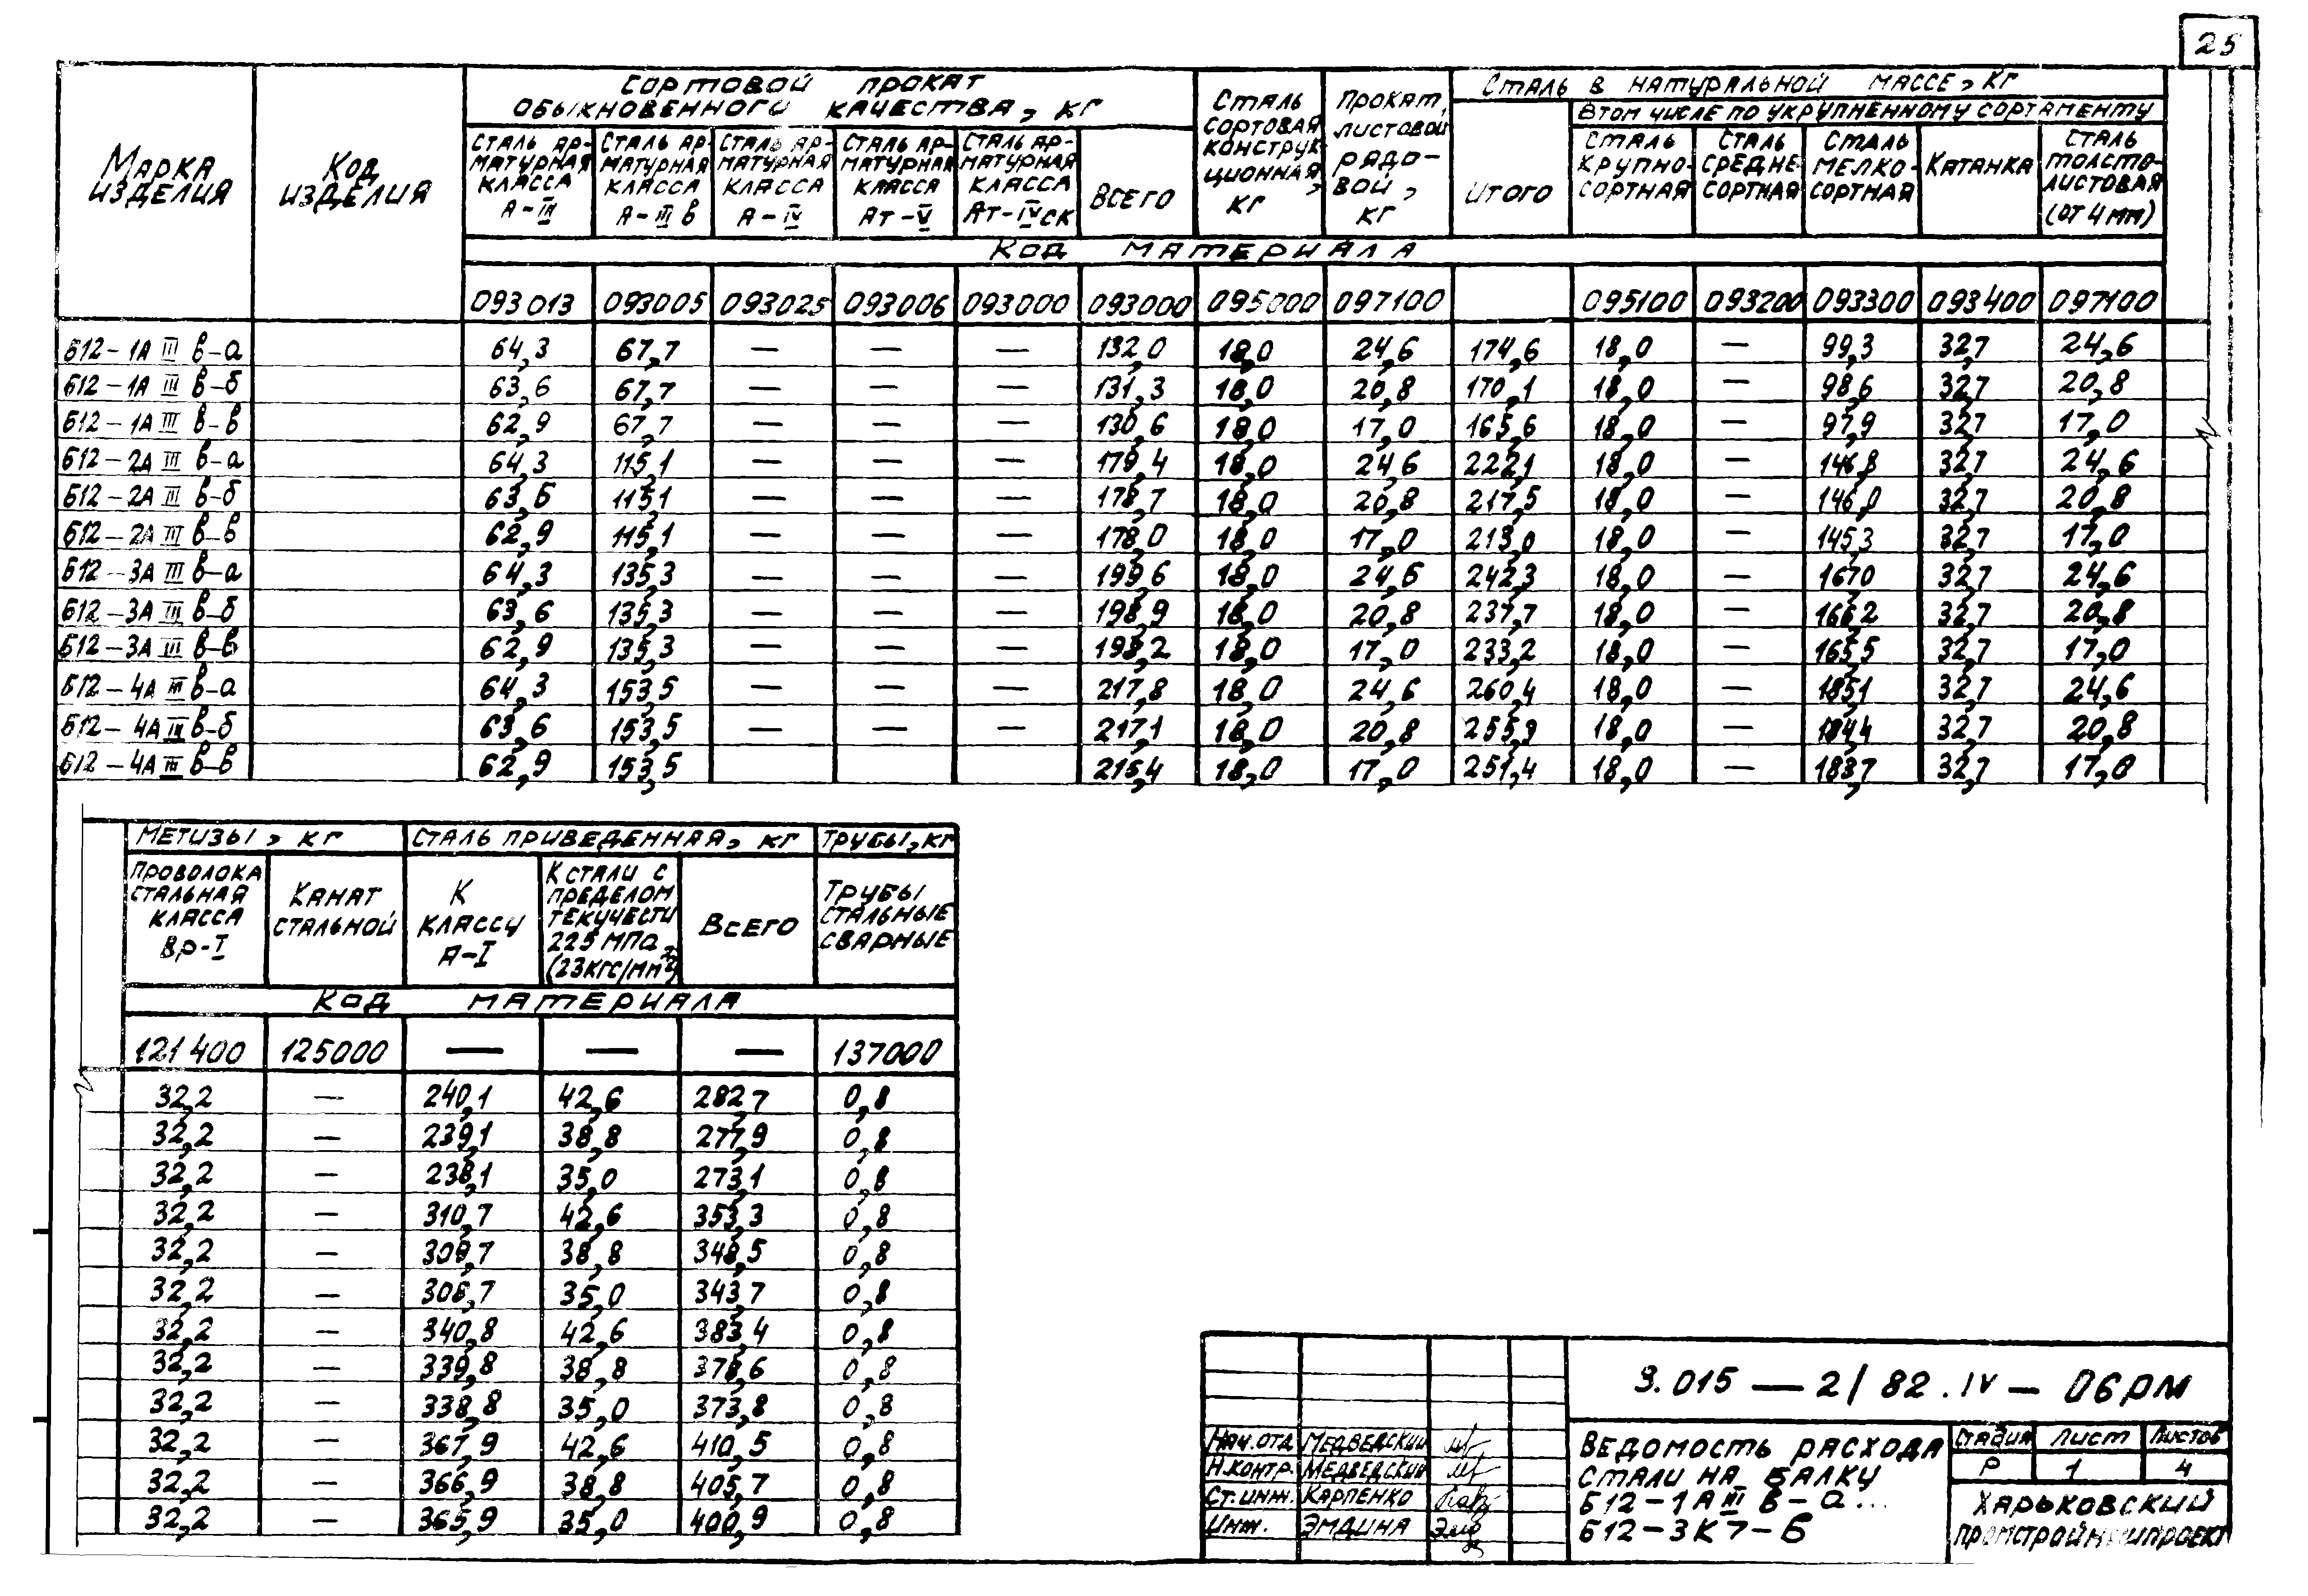 25
Марка изделия | Код изделия | Сортовой прокат обыкновенного качества, кг | Сталь сортовая конструкционная, кг | Прокат листовой рядовой, кг | Сталь в натуральной массе, кг
Итого | Втом числе по укрупненному сортаменту
Сталь ар-матурная класса А-III | Сталь ар-матурная класса А-III в | Сталь ар-матурная класса А-IV | Сталь ар-матурная класса Ат-V | Сталь ар-матурная класса Ат-IVСК | Всего | Сталь крупно-сортная | Сталь средне-сортная | Сталь мелко-сортная | Катанка | Сталь толсто-листовая (от 4 мм)
Код материала
093013 | 093005 | 093025 | 093006 | 093000 | 093000 | 095000 | 097100 | | 095100 | 093200 | 093300 | 093400 | 097100
Б12-1А III в-а | 64,3 | 67,7 | — | — | — | 132,0 | 18,0 | 24,6 | 174,6 | 18,0 | — | 99,3 | 32,7 | 24,6
Б12-1А III в-б | 63,6 | 67,7 | — | — | — | 131,3 | 18,0 | 20,8 | 170,1 | 18,0 | — | 98,6 | 32,7 | 20,8
Б12-1А III в-в | 62,9 | 67,7 | — | — | — | 130,6 | 18,0 | 17,0 | 165,6 | 18,0 | — | 97,9 | 32,7 | 17,0
Б12-2А III в-а | 64,3 | 115,1 | — | — | — | 179,4 | 18,0 | 24,6 | 222,1 | 18,0 | — | 146,8 | 32,7 | 24,6
Б12-2А III в-б | 63,6 | 115,1 | — | — | — | 178,7 | 18,0 | 20,8 | 217,5 | 18,0 | — | 146,0 | 32,7 | 20,8
Б12-2А III в-в | 62,9 | 115,1 | — | — | — | 178,0 | 18,0 | 17,0 | 213,0 | 18,0 | — | 145,3 | 32,7 | 17,0
Б12-3А III в-а | 64,3 | 135,3 | — | — | — | 199,6 | 18,0 | 24,6 | 242,3 | 18,0 | — | 167,0 | 32,7 | 24,6
Б12-3А III в-б | 63,6 | 135,3 | — | — | — | 198,9 | 18,0 | 20,8 | 237,7 | 18,0 | — | 166,2 | 32,7 | 20,8
Б12-3А III в-в | 62,9 | 135,3 | — | — | — | 198,2 | 18,0 | 17,0 | 233,2 | 18,0 | — | 165,5 | 32,7 | 17,0
Б12-4А III в-а | 64,3 | 153,5 | — | — | — | 217,8 | 18,0 | 24,6 | 260,4 | 18,0 | — | 185,1 | 32,7 | 24,6
Б12-4А III в-б | 63,6 | 153,5 | — | — | — | 217,1 | 18,0 | 20,8 | 255,9 | 18,0 | — | 184,4 | 32,7 | 20,8
Б12-4А III в-в | 62,9 | 153,5 | | | | 216,4 | 18,0 | 17,0 | 251,4 | 18,0 | — | 183,7 | 32,7 | 17,0
Метизы, кг | Сталь приведенная, кг | Трубы, кг
Проволока стальная класса Вр-I | Канат стальной | К классу А-I | К стали с пределом текучести 225 МПа (23 кгс/мм²) | Всего | Трубы стальные сварные
Код материала
121400 | 125000 | — | — | — | 137000
32,2 | — | 240,1 | 42,6 | 282,7 | 0,8
32,2 | — | 239,1 | 38,8 | 277,9 | 0,8
32,2 | — | 238,1 | 35,0 | 273,1 | 0,8
32,2 | — | 310,7 | 42,6 | 353,3 | 0,8
32,2 | — | 309,7 | 38,8 | 348,5 | 0,8
32,2 | — | 308,7 | 35,0 | 343,7 | 0,8
32,2 | — | 340,8 | 42,6 | 383,4 | 0,8
32,2 | — | 339,8 | 38,8 | 378,6 | 0,8
32,2 | — | 338,8 | 35,0 | 373,8 | 0,8
32,2 | — | 367,9 | 42,6 | 410,5 | 0,8
32,2 | — | 366,9 | 38,8 | 405,7 | 0,8
32,2 | — | 365,9 | 35,0 | 400,9 | 0,8
3.015 — 2/82.IV — 06РМ
Нач.отд Медведский
Н.контр. Медведский
Ст.инж. Карпенко
Инж. Эмдина
Ведомость расхода
стали на балку
Б12-1А III в-а...
Б12-3К7-Б
Стадия | Лист | Листов
Р | 1 | 4
Харьковский
Промстройниипроект